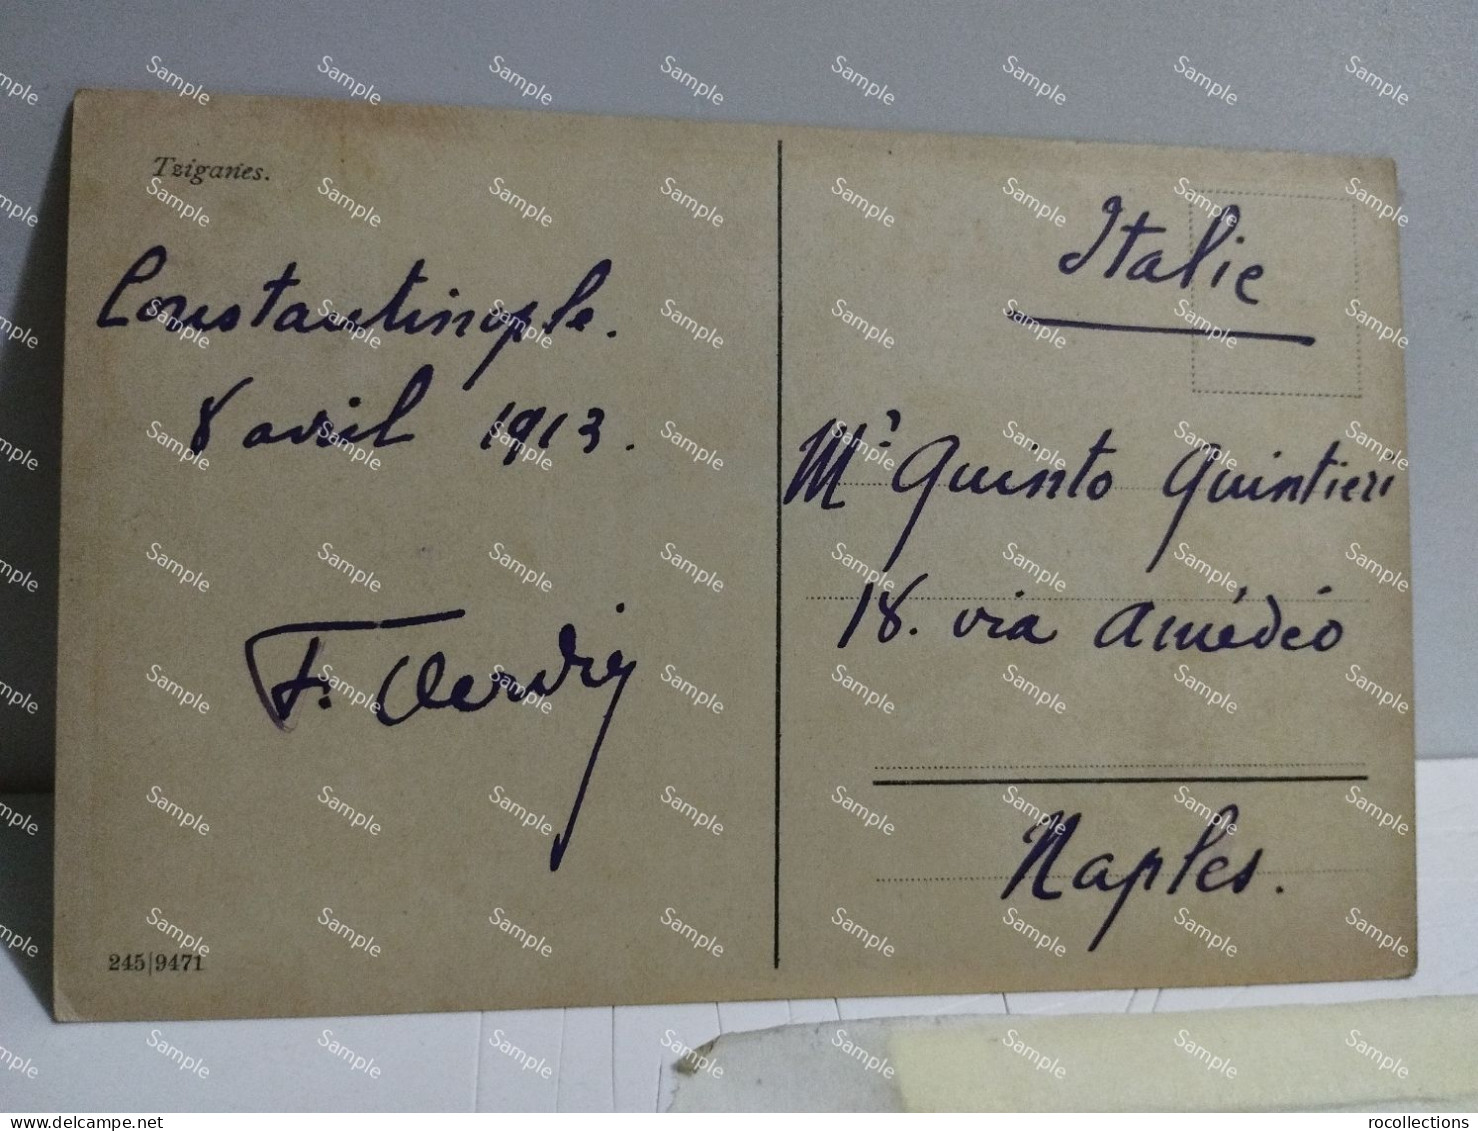 Tziganes.
Constantinople.
8 avril 1913.
F.
245|9471
Italie
Mr Quinto Quintieri
18. via Amédéo
Naples.
delcampe.net
rocollections